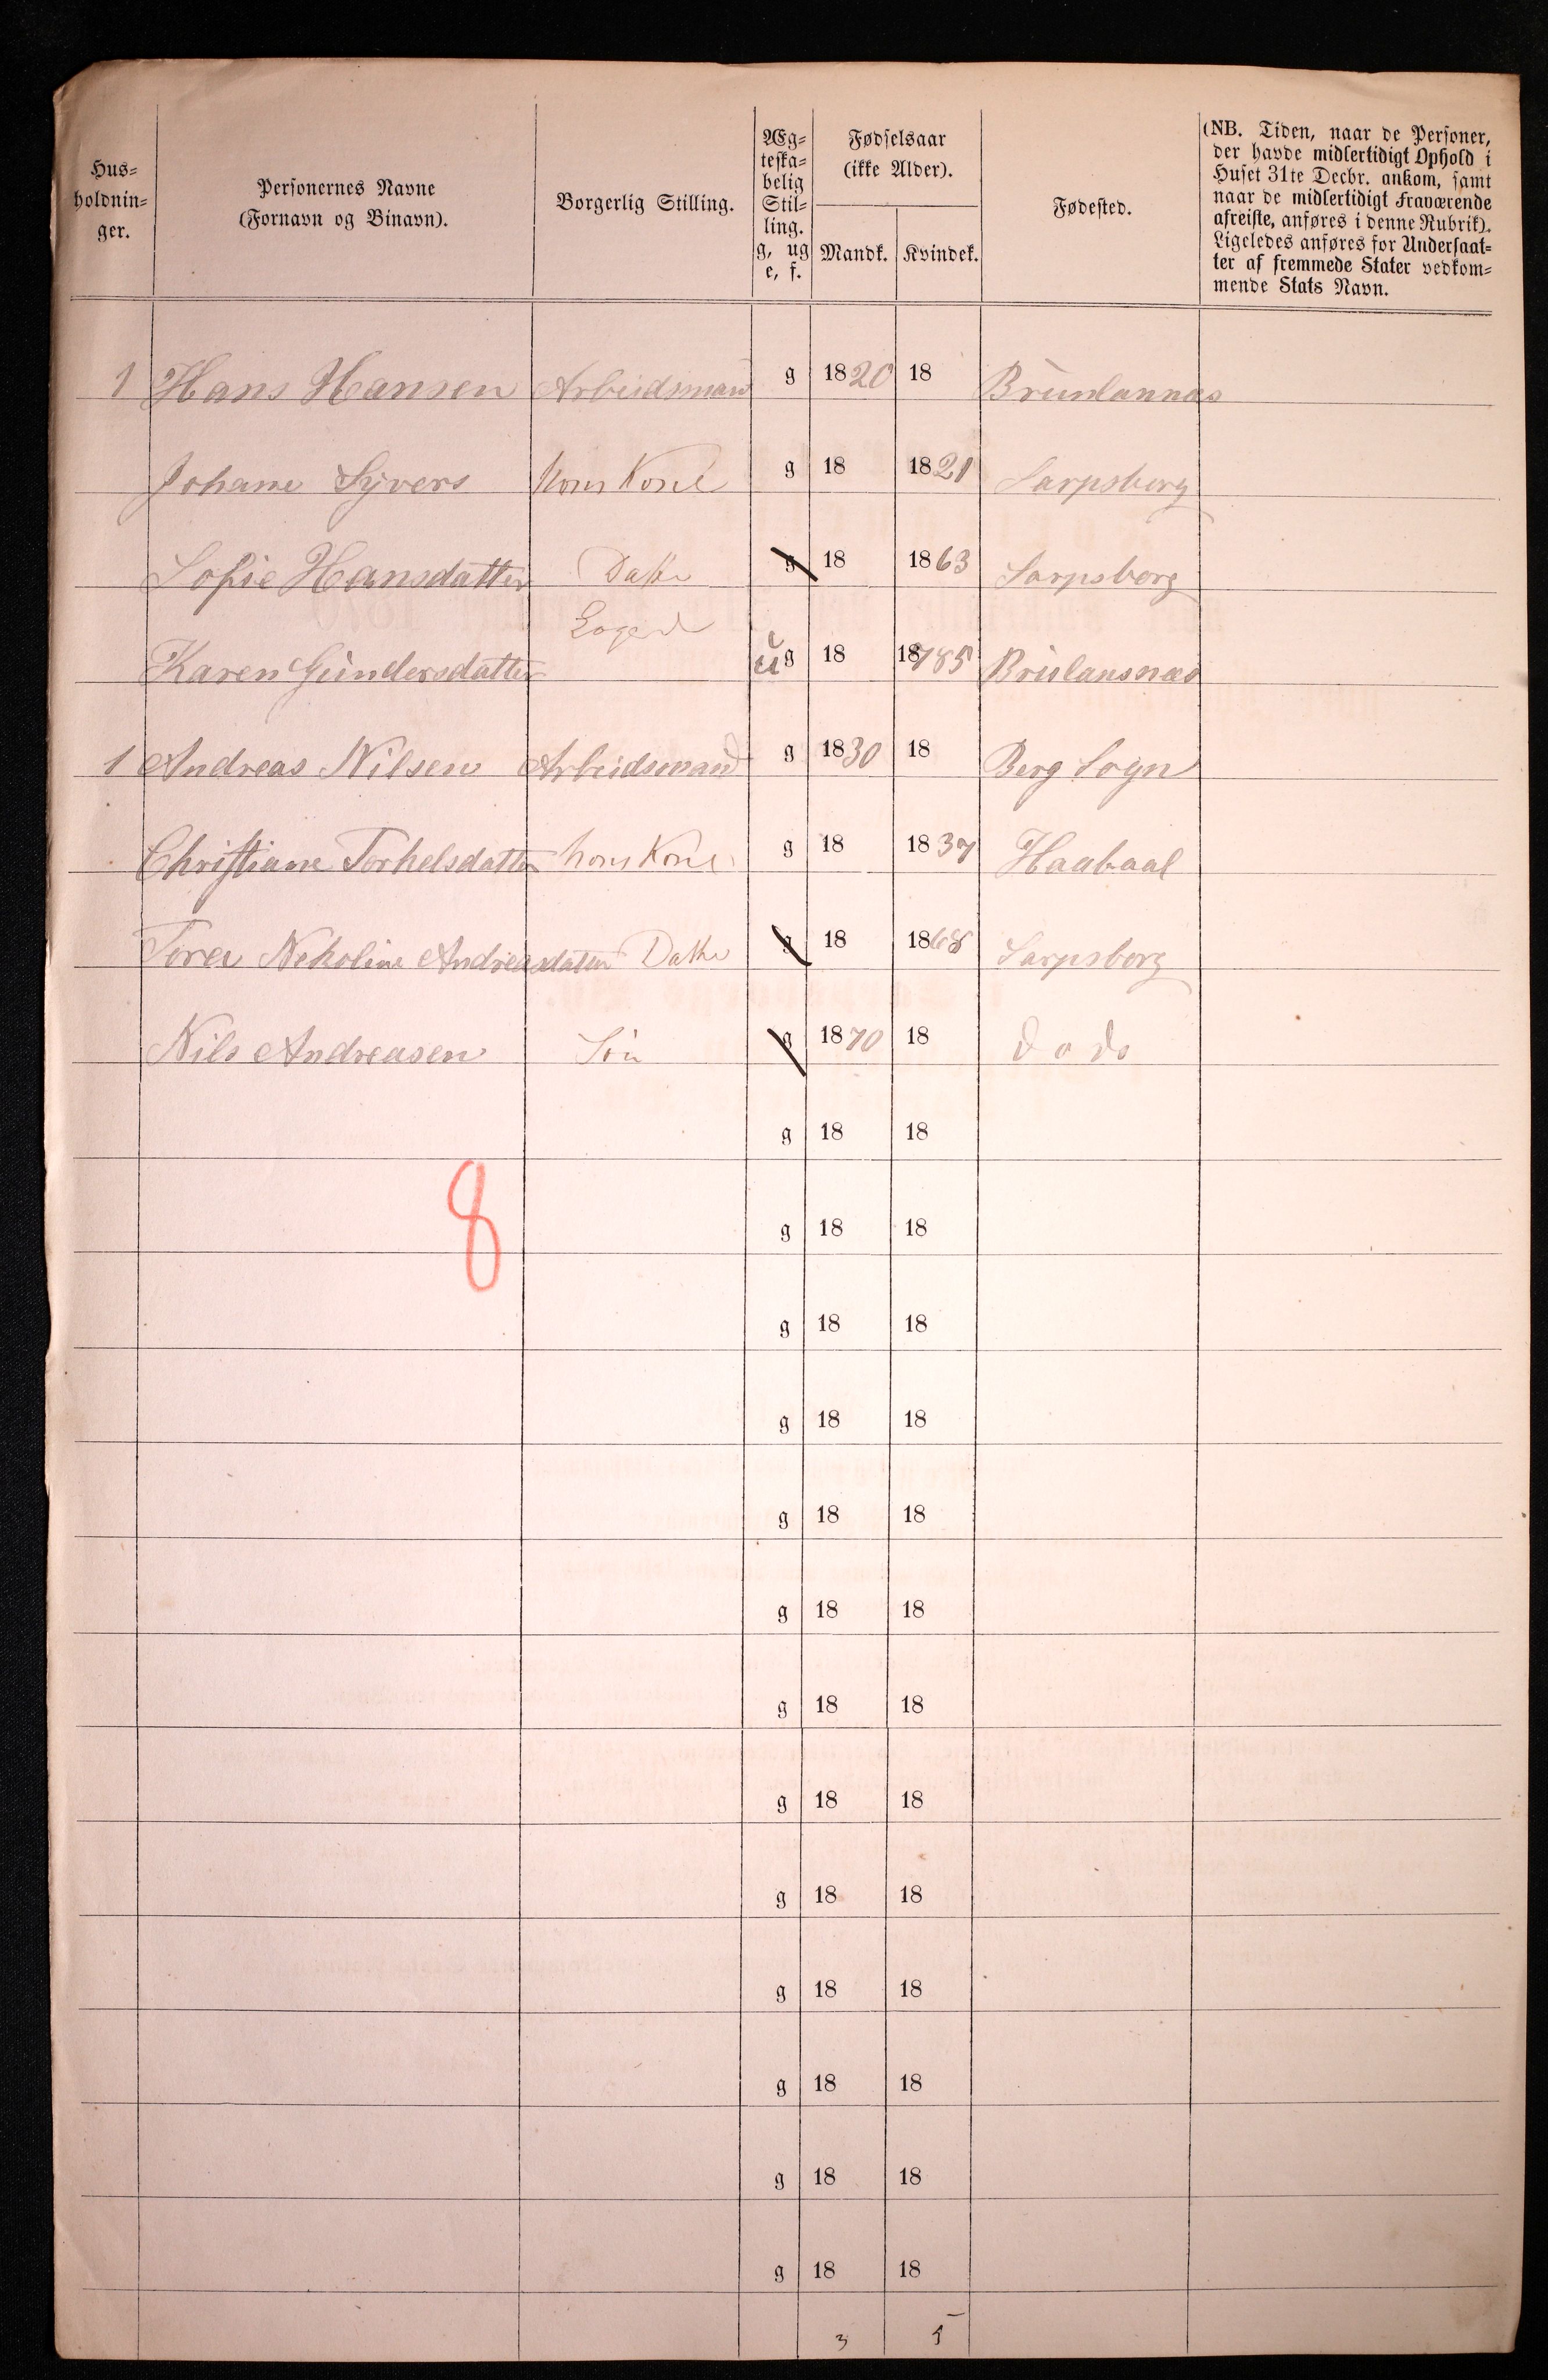 Hus-
holdnin-
ger.
Personernes Navne
(Fornavn og Binavn).
Borgerlig Stilling.
Æg-
teska-
belig
Stil-
ling.
g, ug
e, f.
Fødselsaar
(ikke Alder).
Mandk. Kvindek.
Fødested.
(NB. Tiden, naar de Personer,
der havde midlertidigt Ophold i
Huset 31te Decbr. ankom, samt
naar de midlertidigt Fraværende
afreiste, anføres i denne Rubrik).
Ligeledes anføres for Undersaat-
ter af fremmede Stater vedkom-
mende Stats Navn.
1 Hans Hansen Arbeidsman g 1820 18 Brunlannæs
Johane Syvers hans Kone g 18 1821 Sarpsborg
Sofie Hansdatter Datter g 18 1863 Sarpsborg
Logerd
Karen Gundersdatter ug 18 1785 Brulansnæs
1 Andreas Nilsen Arbeidsmand g 1830 18 Berg Sogn
Christiane Torkelsdatter hans Kone g 18 1837 Haabaal
Torea Nekoline Andreasdatter Datter g 18 1868 Sarpsborg
Nils Andreasen Sön g 1870 18 do do
g 18 18
8
g 18 18
g 18 18
g 18 18
g 18 18
g 18 18
g 18 18
g 18 18
g 18 18
g 18 18
g 18 18
g 18 18
g 18 18
3 5